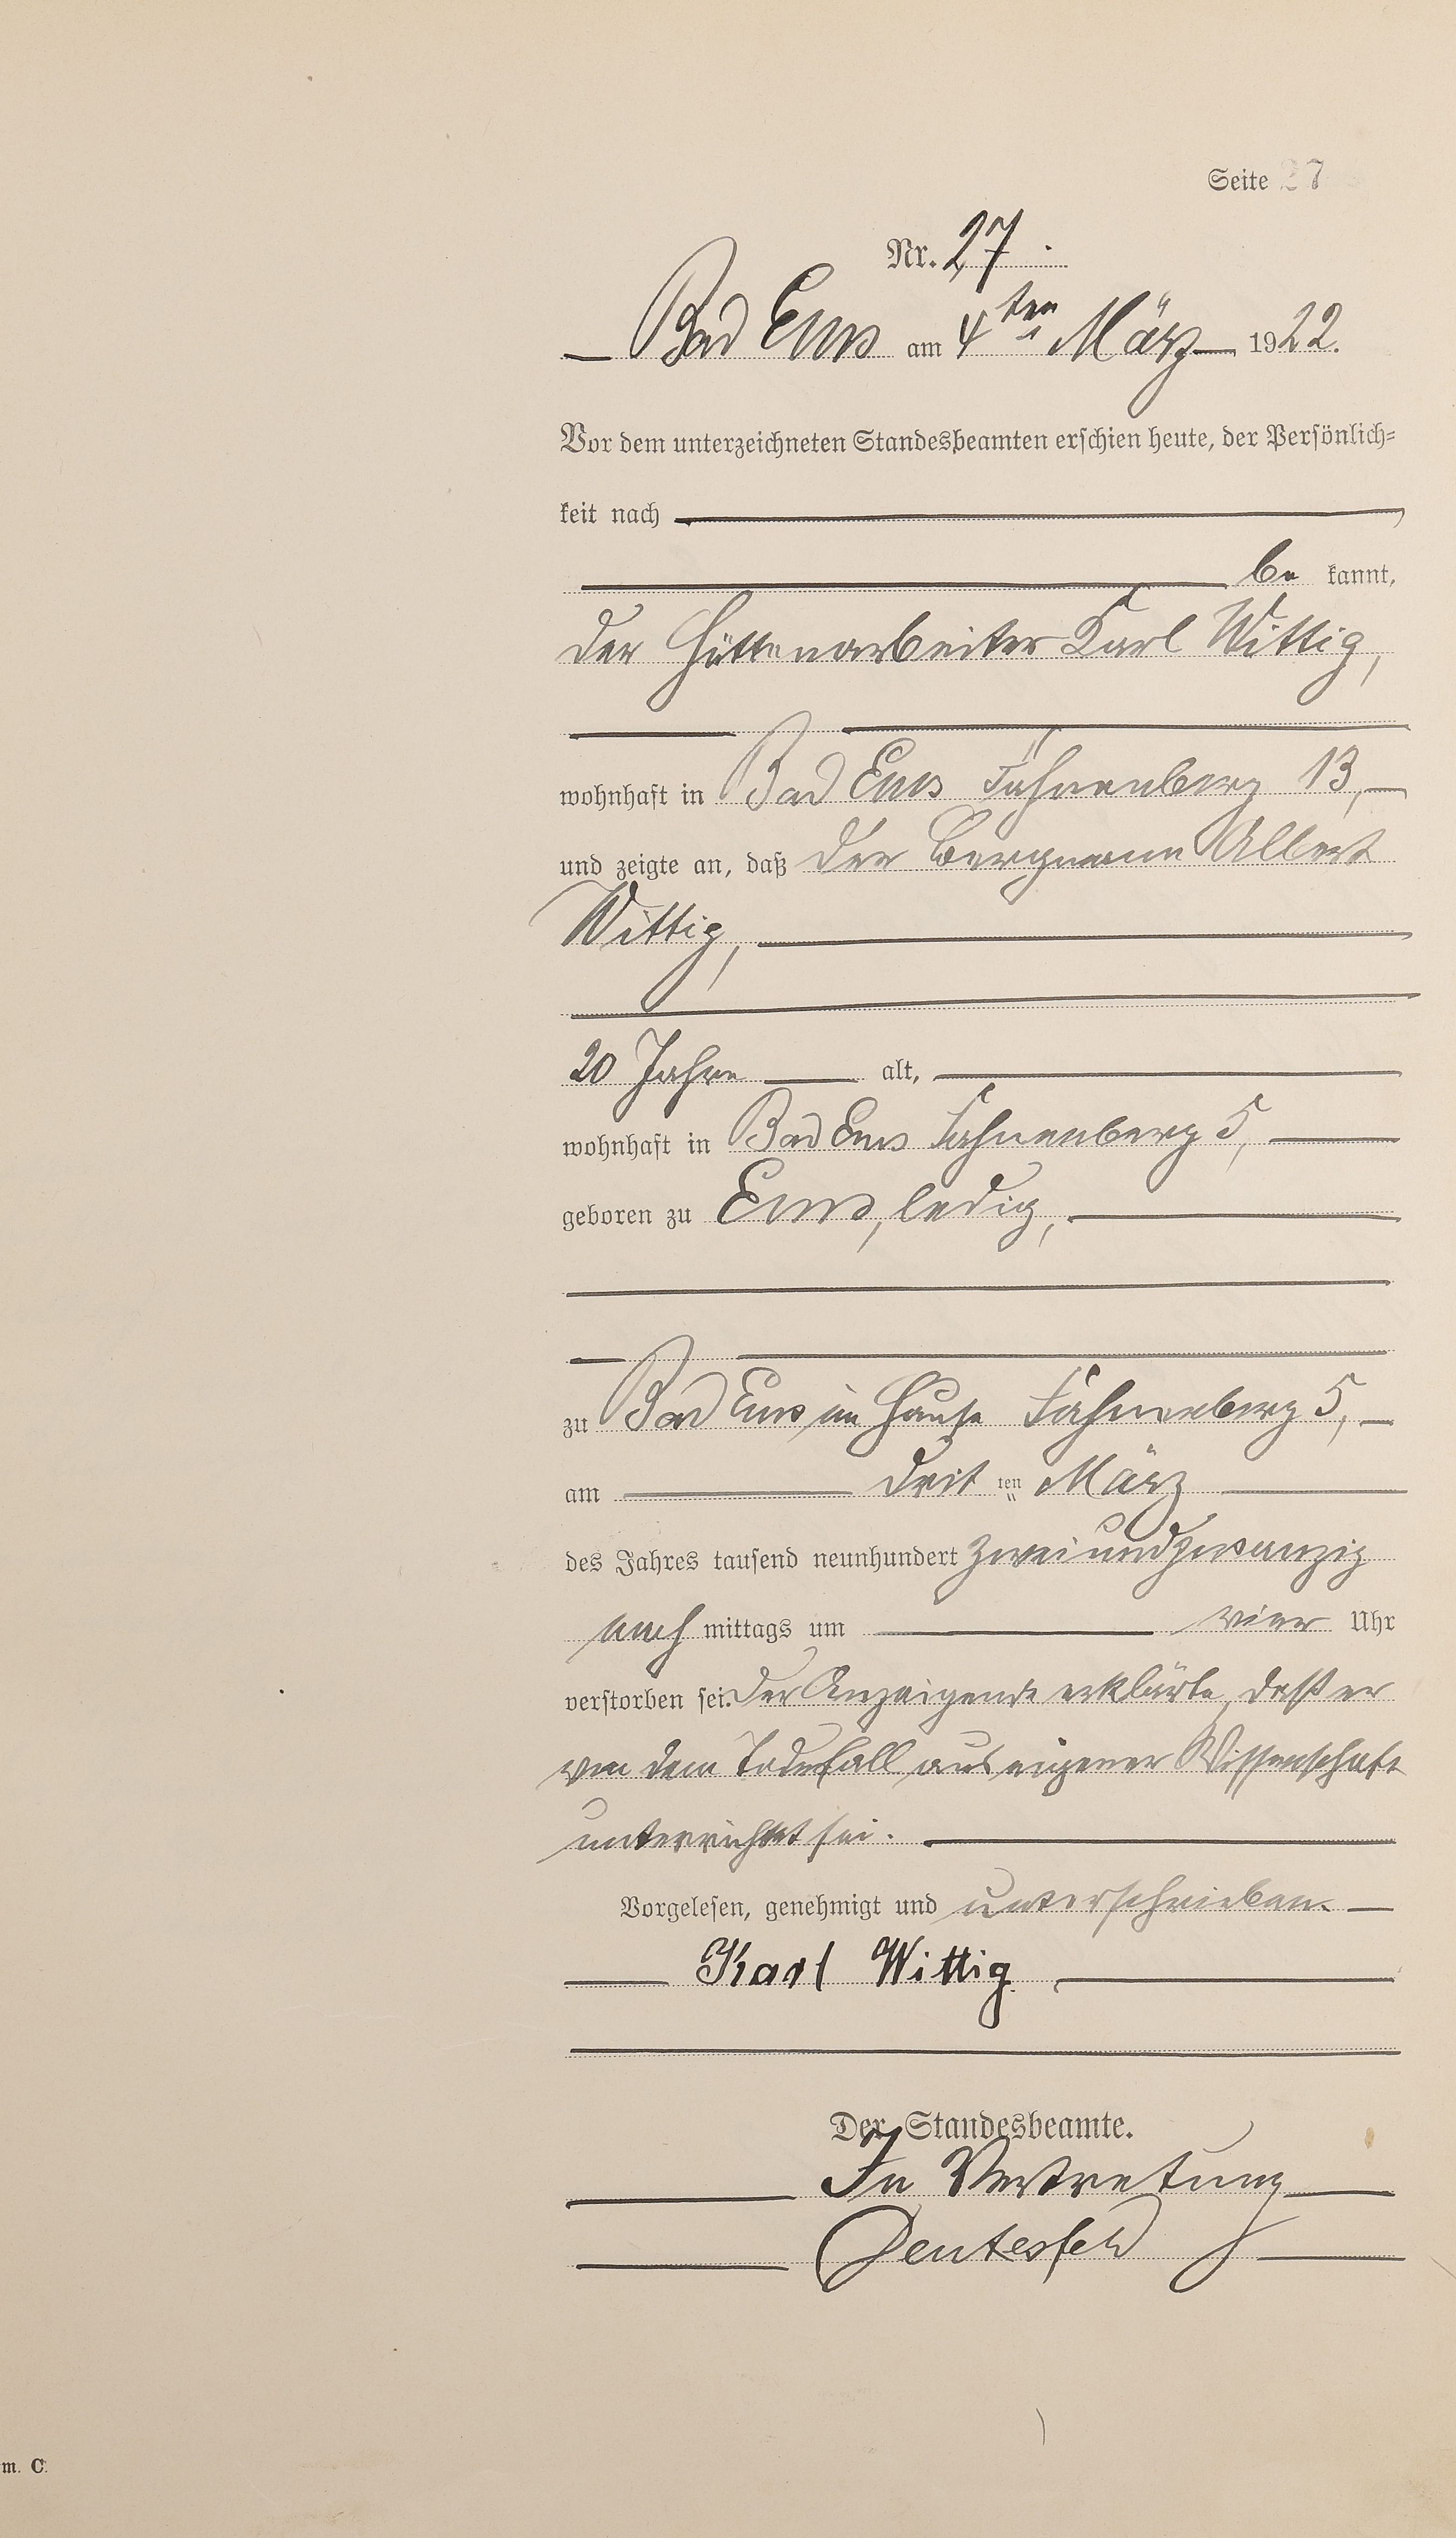 Seite 27
Nr. 27.
Bad Ems am 4ten März 1922.
Vor dem unterzeichneten Standesbeamten erschien heute, der Persönlich-
keit nach
be kannt,
der Hüttenarbeiter Karl Wittig,
wohnhaft in Bad Ems Fahnenberg 13,
und zeigte an, daß der Bergmann Albert
Wittig,
20 Jahre alt,
wohnhaft in Bad Ems Fahnenberg 5,
geboren zu Ems, ledig,
zu Bad Ems im Hause Fahnenberg 5,
am drit ten März
des Jahres tausend neunhundert zweiundzwanzig
nach mittags um vier Uhr
verstorben sei. Der Anzeigende erklärte, daß er
von dem Todesfall aus eigener Wissenschaft
unterrichtet sei.
Vorgelesen, genehmigt und unterschrieben.
Karl Wittig.
Der Standesbeamte.
In Vertretung
m. C.